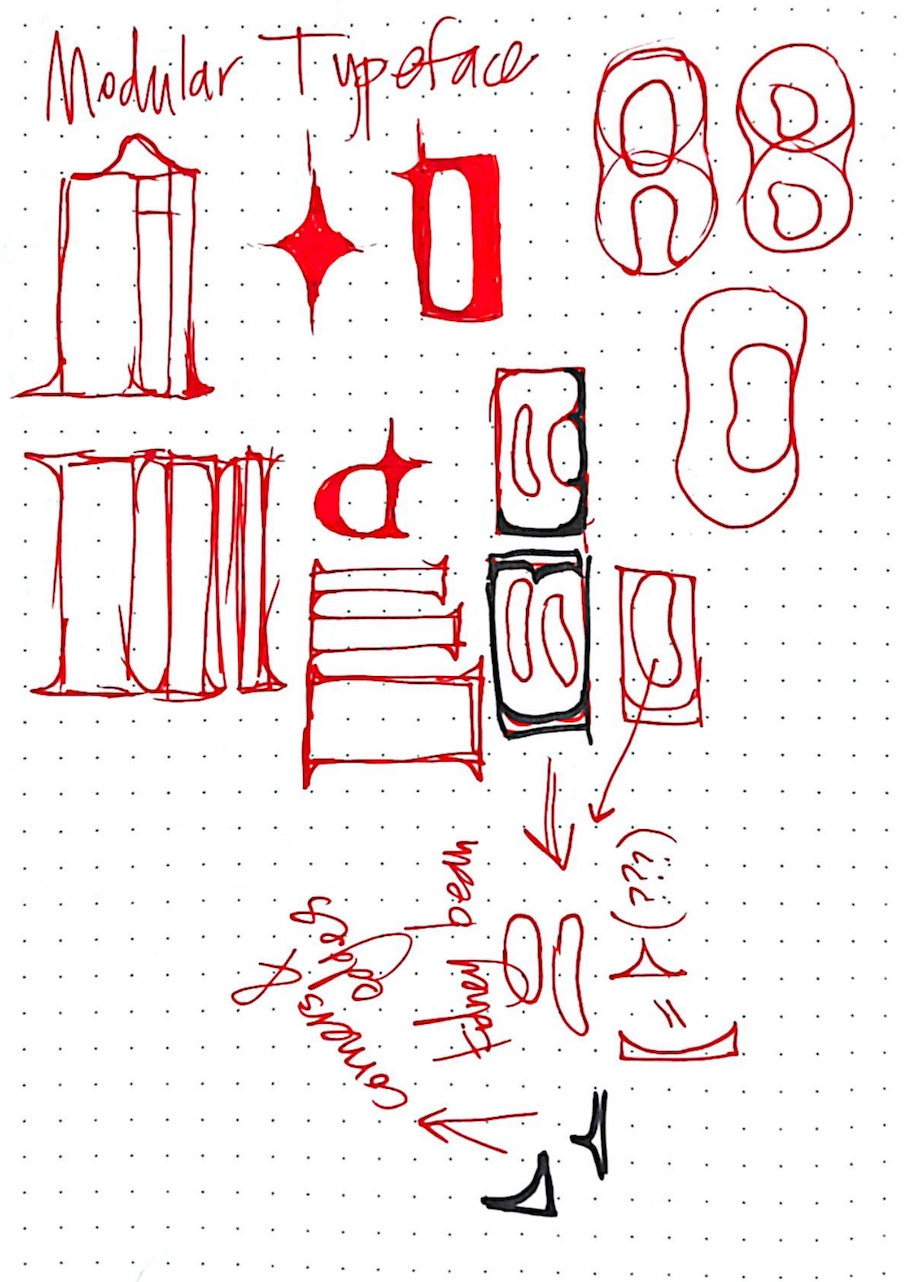 Modular Typeface
kidney bean
corners
& edges